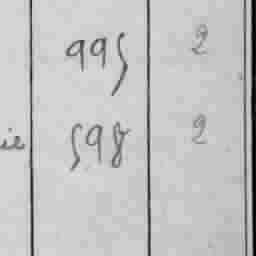 995 2
ie 598 2